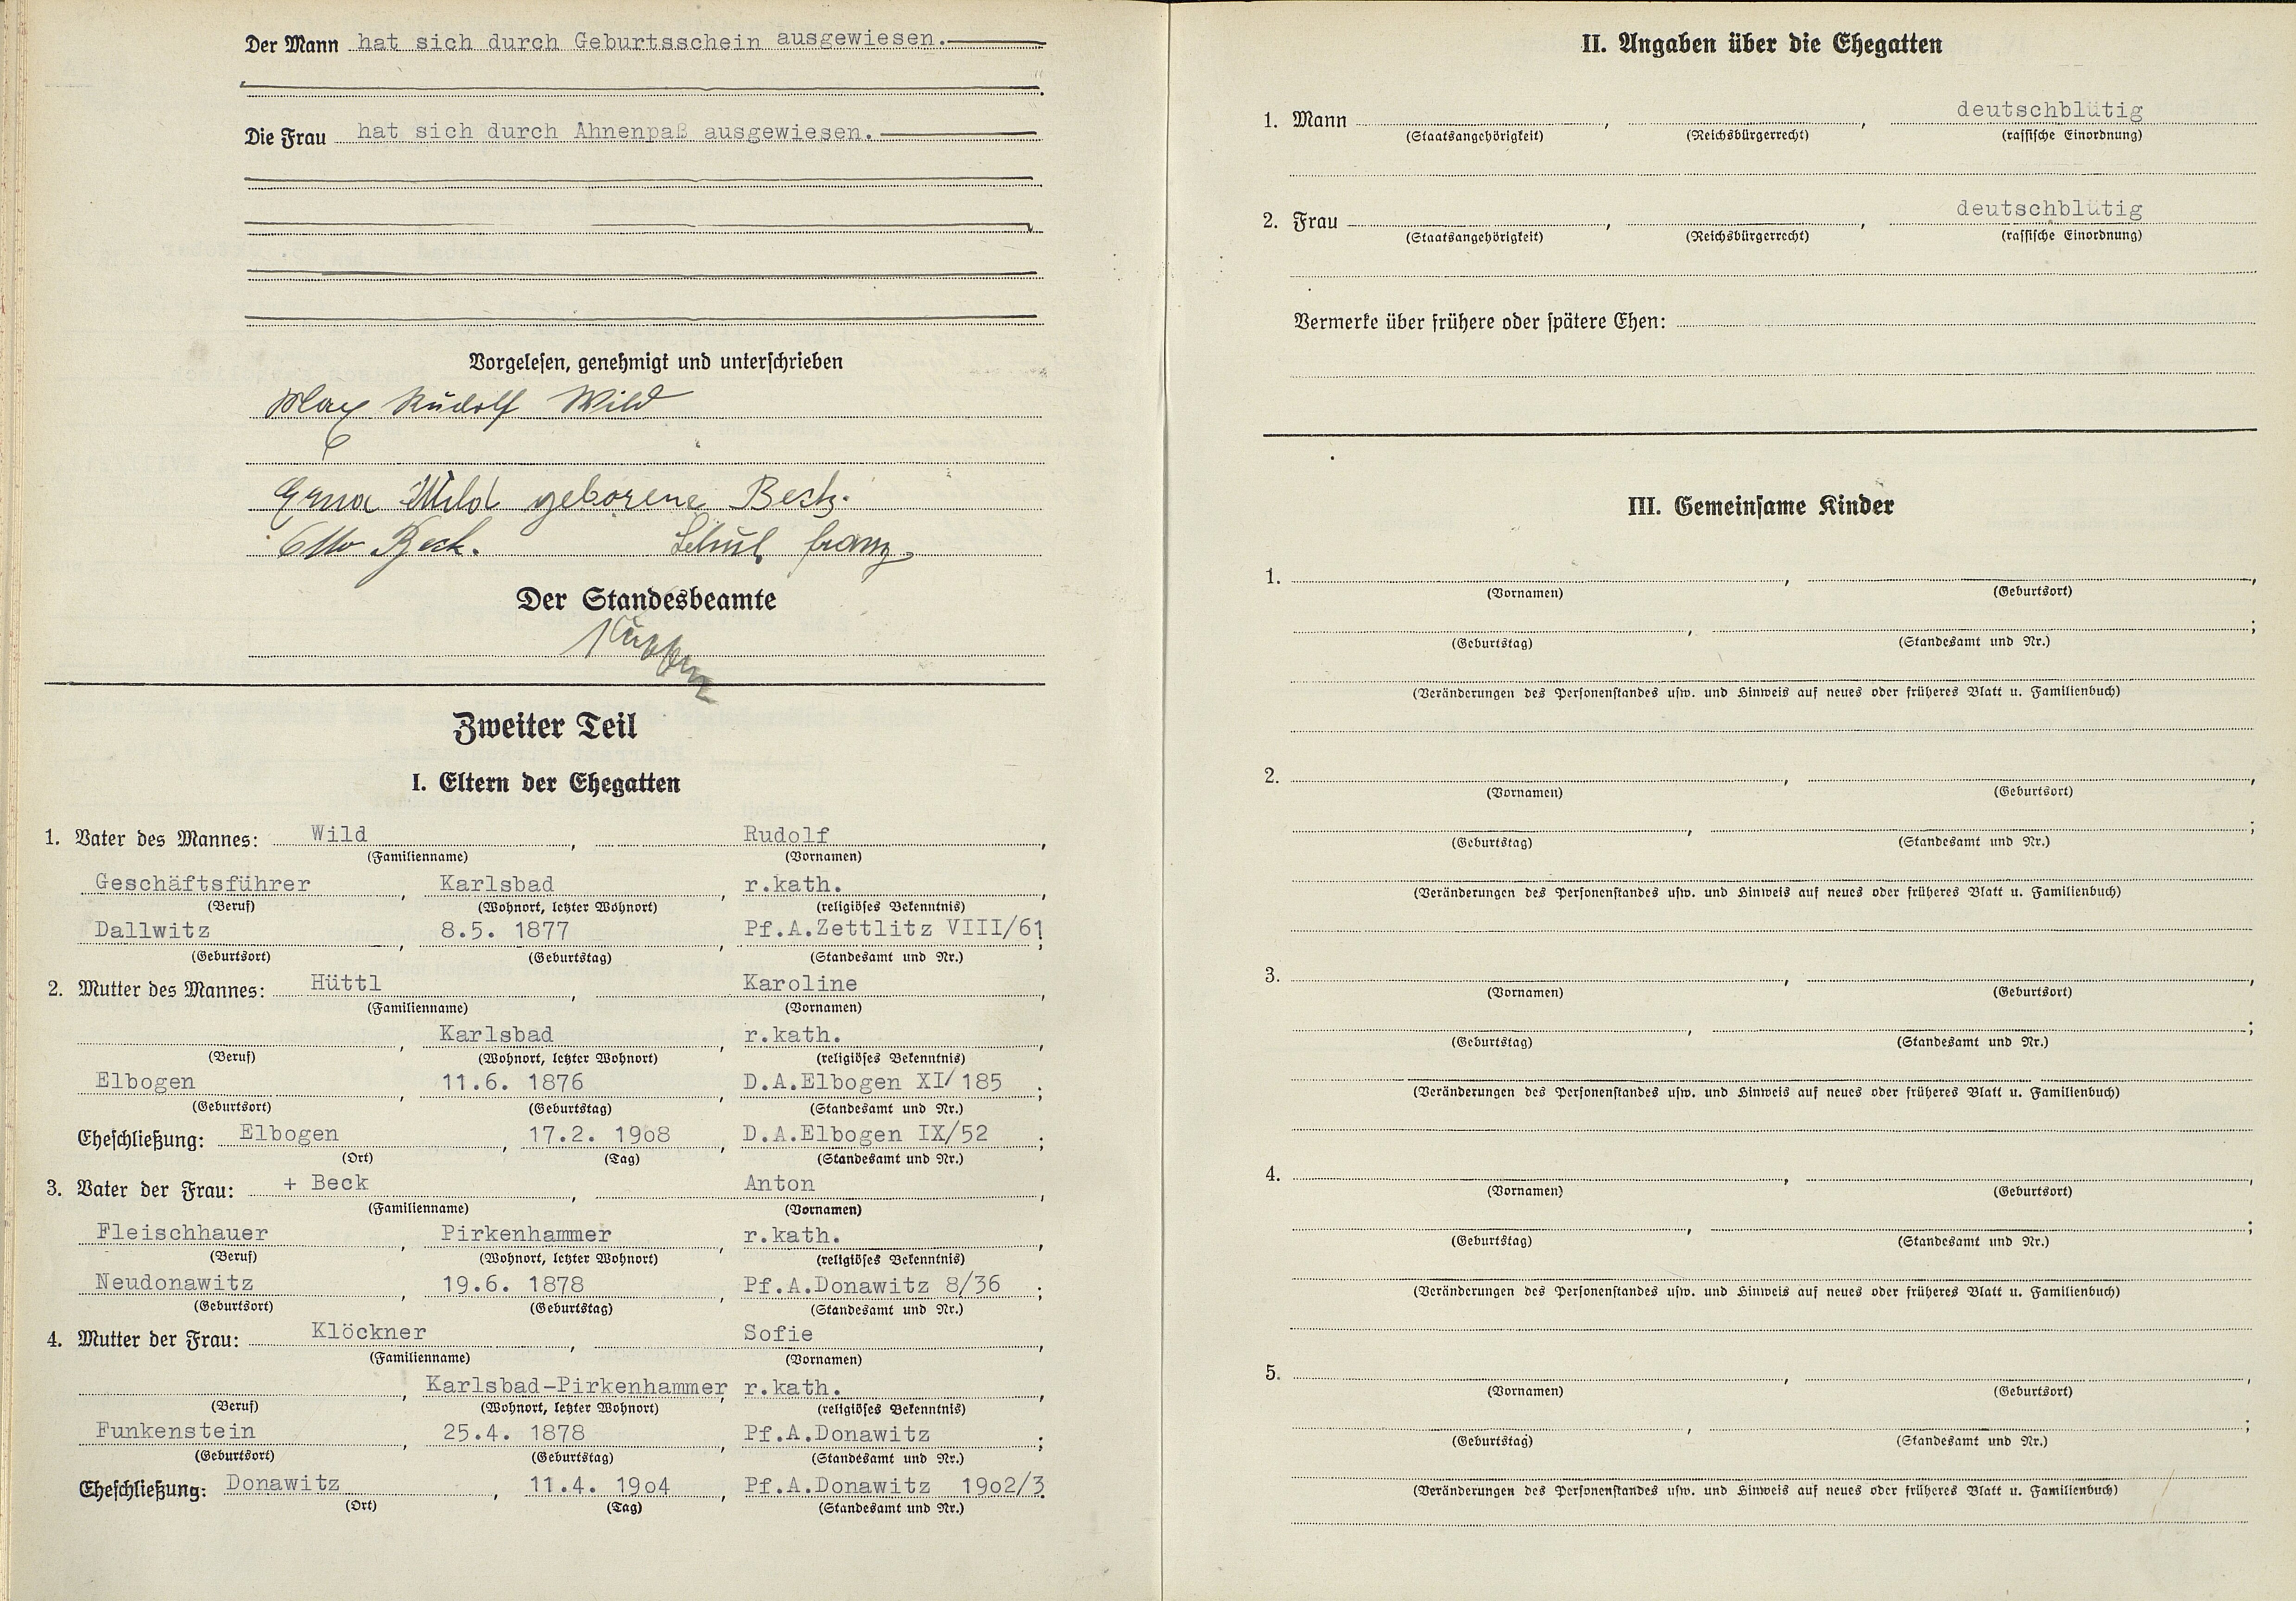 Der Mann hat sich durch Geburtsschein ausgewiesen.
Die Frau hat sich durch Ahnenpaß ausgewiesen.
Vorgelesen, genehmigt und unterschrieben
Max Rudolf Wild
Erna Wild geborene Beck.
Otto Beck. Franz
Der Standesbeamte
Zweiter Teil
I. Eltern der Ehegatten
1. Vater des Mannes: Wild, Rudolf,
(Familienname) (Vornamen)
Geschäftsführer, Karlsbad, r.kath.,
(Beruf) (Wohnort, letzter Wohnort) (religiöses Bekenntnis)
Dallwitz, 8.5. 1877, Pf.A.Zettlitz VIII/61;
(Geburtsort) (Geburtstag) (Standesamt und Nr.)
2. Mutter des Mannes: Hüttl, Karoline,
(Familienname) (Vornamen)
, Karlsbad, r.kath.,
(Beruf) (Wohnort, letzter Wohnort) (religiöses Bekenntnis)
Elbogen, 11.6. 1876, D.A.Elbogen XI/185;
(Geburtsort) (Geburtstag) (Standesamt und Nr.)
Eheschließung: Elbogen, 17.2. 19o8, D.A.Elbogen IX/52;
(Ort) (Tag) (Standesamt und Nr.)
3. Vater der Frau: + Beck, Anton,
(Familienname) (Vornamen)
Fleischhauer, Pirkenhammer, r.kath.,
(Beruf) (Wohnort, letzter Wohnort) (religiöses Bekenntnis)
Neudonawitz, 19.6. 1878, Pf.A.Donawitz 8/36;
(Geburtsort) (Geburtstag) (Standesamt und Nr.)
4. Mutter der Frau: Klöckner, Sofie,
(Familienname) (Vornamen)
, Karlsbad-Pirkenhammer, r.kath.,
(Beruf) (Wohnort, letzter Wohnort) (religiöses Bekenntnis)
Funkenstein, 25.4. 1878, Pf.A.Donawitz;
(Geburtsort) (Geburtstag) (Standesamt und Nr.)
Eheschließung: Donawitz, 11.4. 19o4, Pf.A.Donawitz 19o2/3
(Ort) (Tag) (Standesamt und Nr.)
II. Angaben über die Ehegatten
1. Mann , , deutschblütig
(Staatsangehörigkeit) (Reichsbürgerrecht) (rassische Einordnung)
2. Frau , , deutschblütig
(Staatsangehörigkeit) (Reichsbürgerrecht) (rassische Einordnung)
Vermerke über frühere oder spätere Ehen:
III. Gemeinsame Kinder
1. , ,
(Vornamen) (Geburtsort)
, ;
(Geburtstag) (Standesamt und Nr.)
(Veränderungen des Personenstandes usw. und Hinweis auf neues oder früheres Blatt u. Familienbuch)
2. , ,
(Vornamen) (Geburtsort)
, ;
(Geburtstag) (Standesamt und Nr.)
(Veränderungen des Personenstandes usw. und Hinweis auf neues oder früheres Blatt u. Familienbuch)
3. , ,
(Vornamen) (Geburtsort)
, ;
(Geburtstag) (Standesamt und Nr.)
(Veränderungen des Personenstandes usw. und Hinweis auf neues oder früheres Blatt u. Familienbuch)
4. , ,
(Vornamen) (Geburtsort)
, ;
(Geburtstag) (Standesamt und Nr.)
(Veränderungen des Personenstandes usw. und Hinweis auf neues oder früheres Blatt u. Familienbuch)
5. , ,
(Vornamen) (Geburtsort)
, ;
(Geburtstag) (Standesamt und Nr.)
(Veränderungen des Personenstandes usw. und Hinweis auf neues oder früheres Blatt u. Familienbuch)